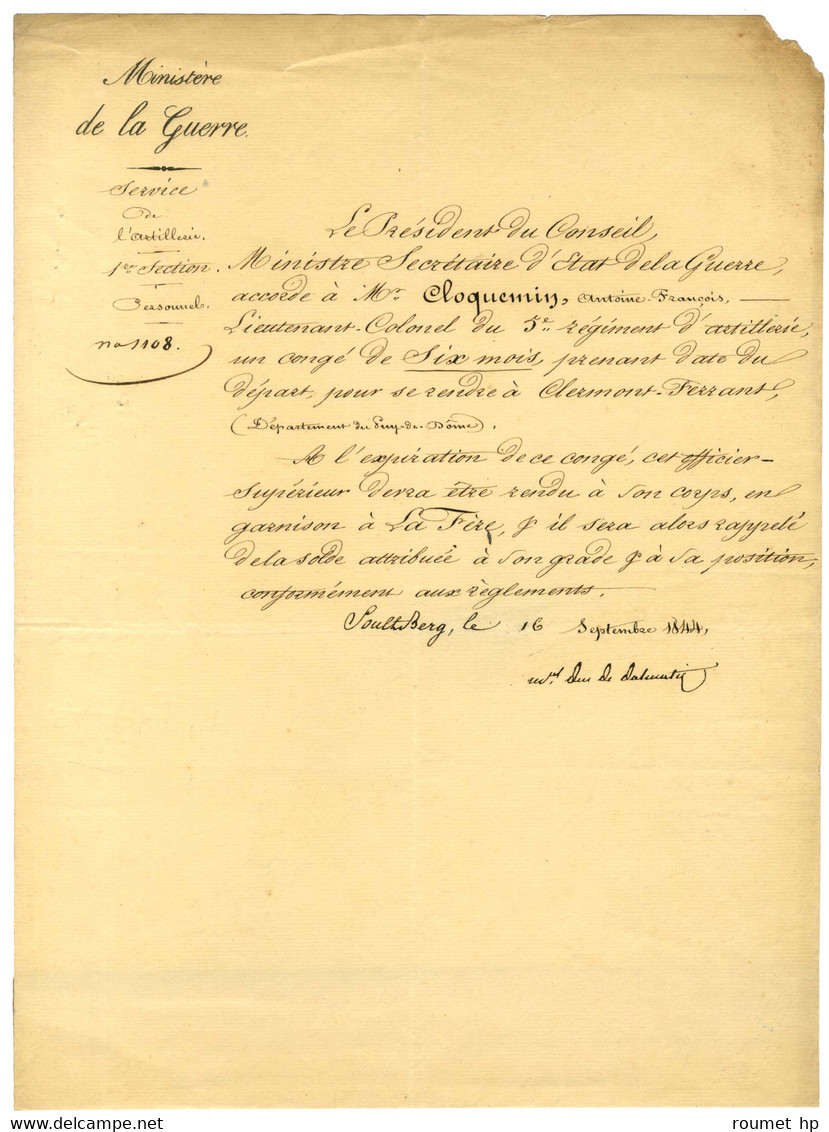 Ministère
de la Guerre.
Service
de
l'artillerie.
1re Section.
Personnel.
no 1108.
Le Président du Conseil,
Ministre Secrétaire d'Etat de la Guerre,
accorde à Mr. Cloquemin, Antoine-François,
Lieutenant-Colonel du 5e régiment d'artillerie,
un congé de Six mois, prenant date du
départ, pour se rendre à Clermont-Ferrant,
(Département du Puy-de-Dôme).
A l'expiration de ce congé, cet officier
supérieur devra être rendu à son corps, en
garnison à La Fère, & il sera alors rappelé
de la solde attribuée à son grade & à sa position,
conformément aux règlements.
Soult Berg, le 16 Septembre 1844,
Mal Duc de Dalmatie
delcampe.net
roumet hp